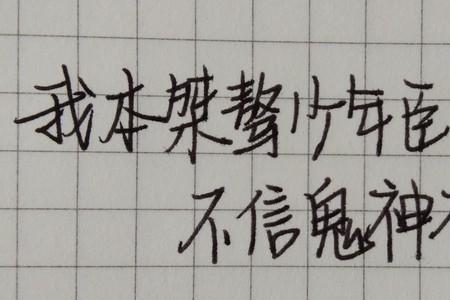 我本桀骜少年臣
不信鬼神